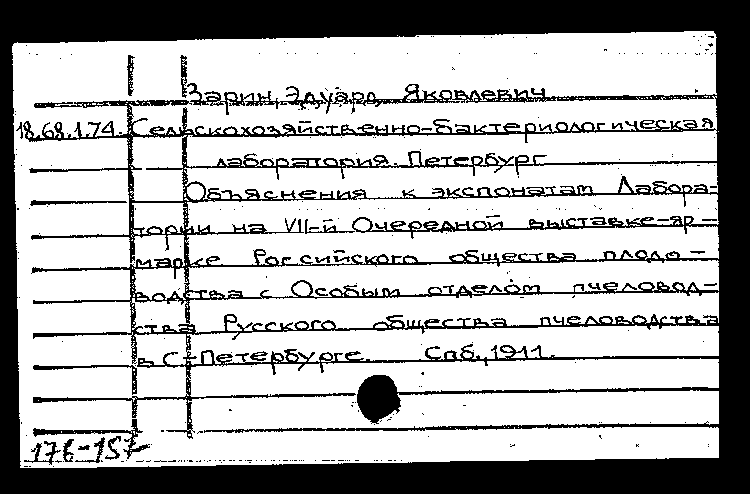 Зарин, Эдуард Яковлевич
18.68.1.74. Сельскохозяйственно-бактериологическая
лаборатория. Петербург
Объяснения к экспонатам Лабора-
тории на VII-й Очередной выставке-яр-
марке Российского общества плодо-
водства с Особым отделом пчеловод-
ства Русского общества пчеловодства
в С-Петербурге. Спб., 1911.
176-157